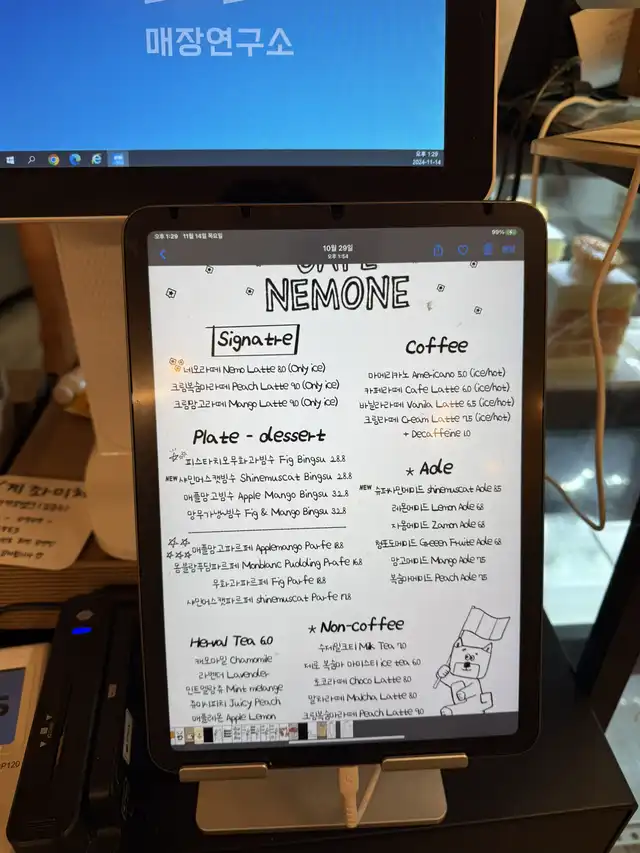 매장연구소
오후 1:29
2024-11-14
오후 1:29 11월 14일 목요일
99%
10월 29일
오후 1:54
CAFE
NEMONE
Signatre
네모라떼 Nemo Latte 8.0 (Only ice)
크림복숭아라떼 Peach Latte 9.0 (Only ice)
크림망고라떼 Mango Latte 9.0 (Only ice)
Plate - dessert
피스타치오무화과빙수 Fig Bingsu 28.8
NEW 샤인머스캣빙수 Shinemuscat Bingsu 28.8
애플망고빙수 Apple Mango Bingsu 32.8
망무가냉빙수 Fig & Mango Bingsu 32.8
애플망고파르페 Applemango Parfe 18.8
몽블랑푸딩파르페 Monblanc Pudding Prafe 16.8
무화과파르페 Fig Parfe 18.8
샤인머스캣파르페 shinemuscat Parfe 17.8
Herval Tea 6.0
캐모마일 Chamomile
라벤더 Lavender
민트멜랑쥬 Mint melange
쥬이시피치 Juicy Peach
애플레몬 Apple Lemon
Coffee
아메리카노 Americano 5.0 (ice/hot)
카페라떼 Cafe Latte 6.0 (ice/hot)
바닐라라떼 Vanila Latte 6.5 (ice/hot)
크림라떼 Cream Latte 7.5 (ice/hot)
+ Decaffeine 1.0
* Ade
NEW 슈퍼샤인에이드 shinemuscat Ade 8.5
레몬에이드 Lemon Ade 6.8
자몽에이드 Zamon Ade 6.8
청포도에이드 Greeen Fruite Ade 6.8
망고에이드 Mango Ade 7.5
복숭아에이드 Peach Ade 7.5
* Non-coffee
수제밀크티 Milk Tea 7.0
제로 복숭아 아이스티 ice tea 6.0
초코라떼 Choco Latte 8.0
말차라떼 Matcha Latte 8.0
크림복숭아라떼 Peach Latte 9.0